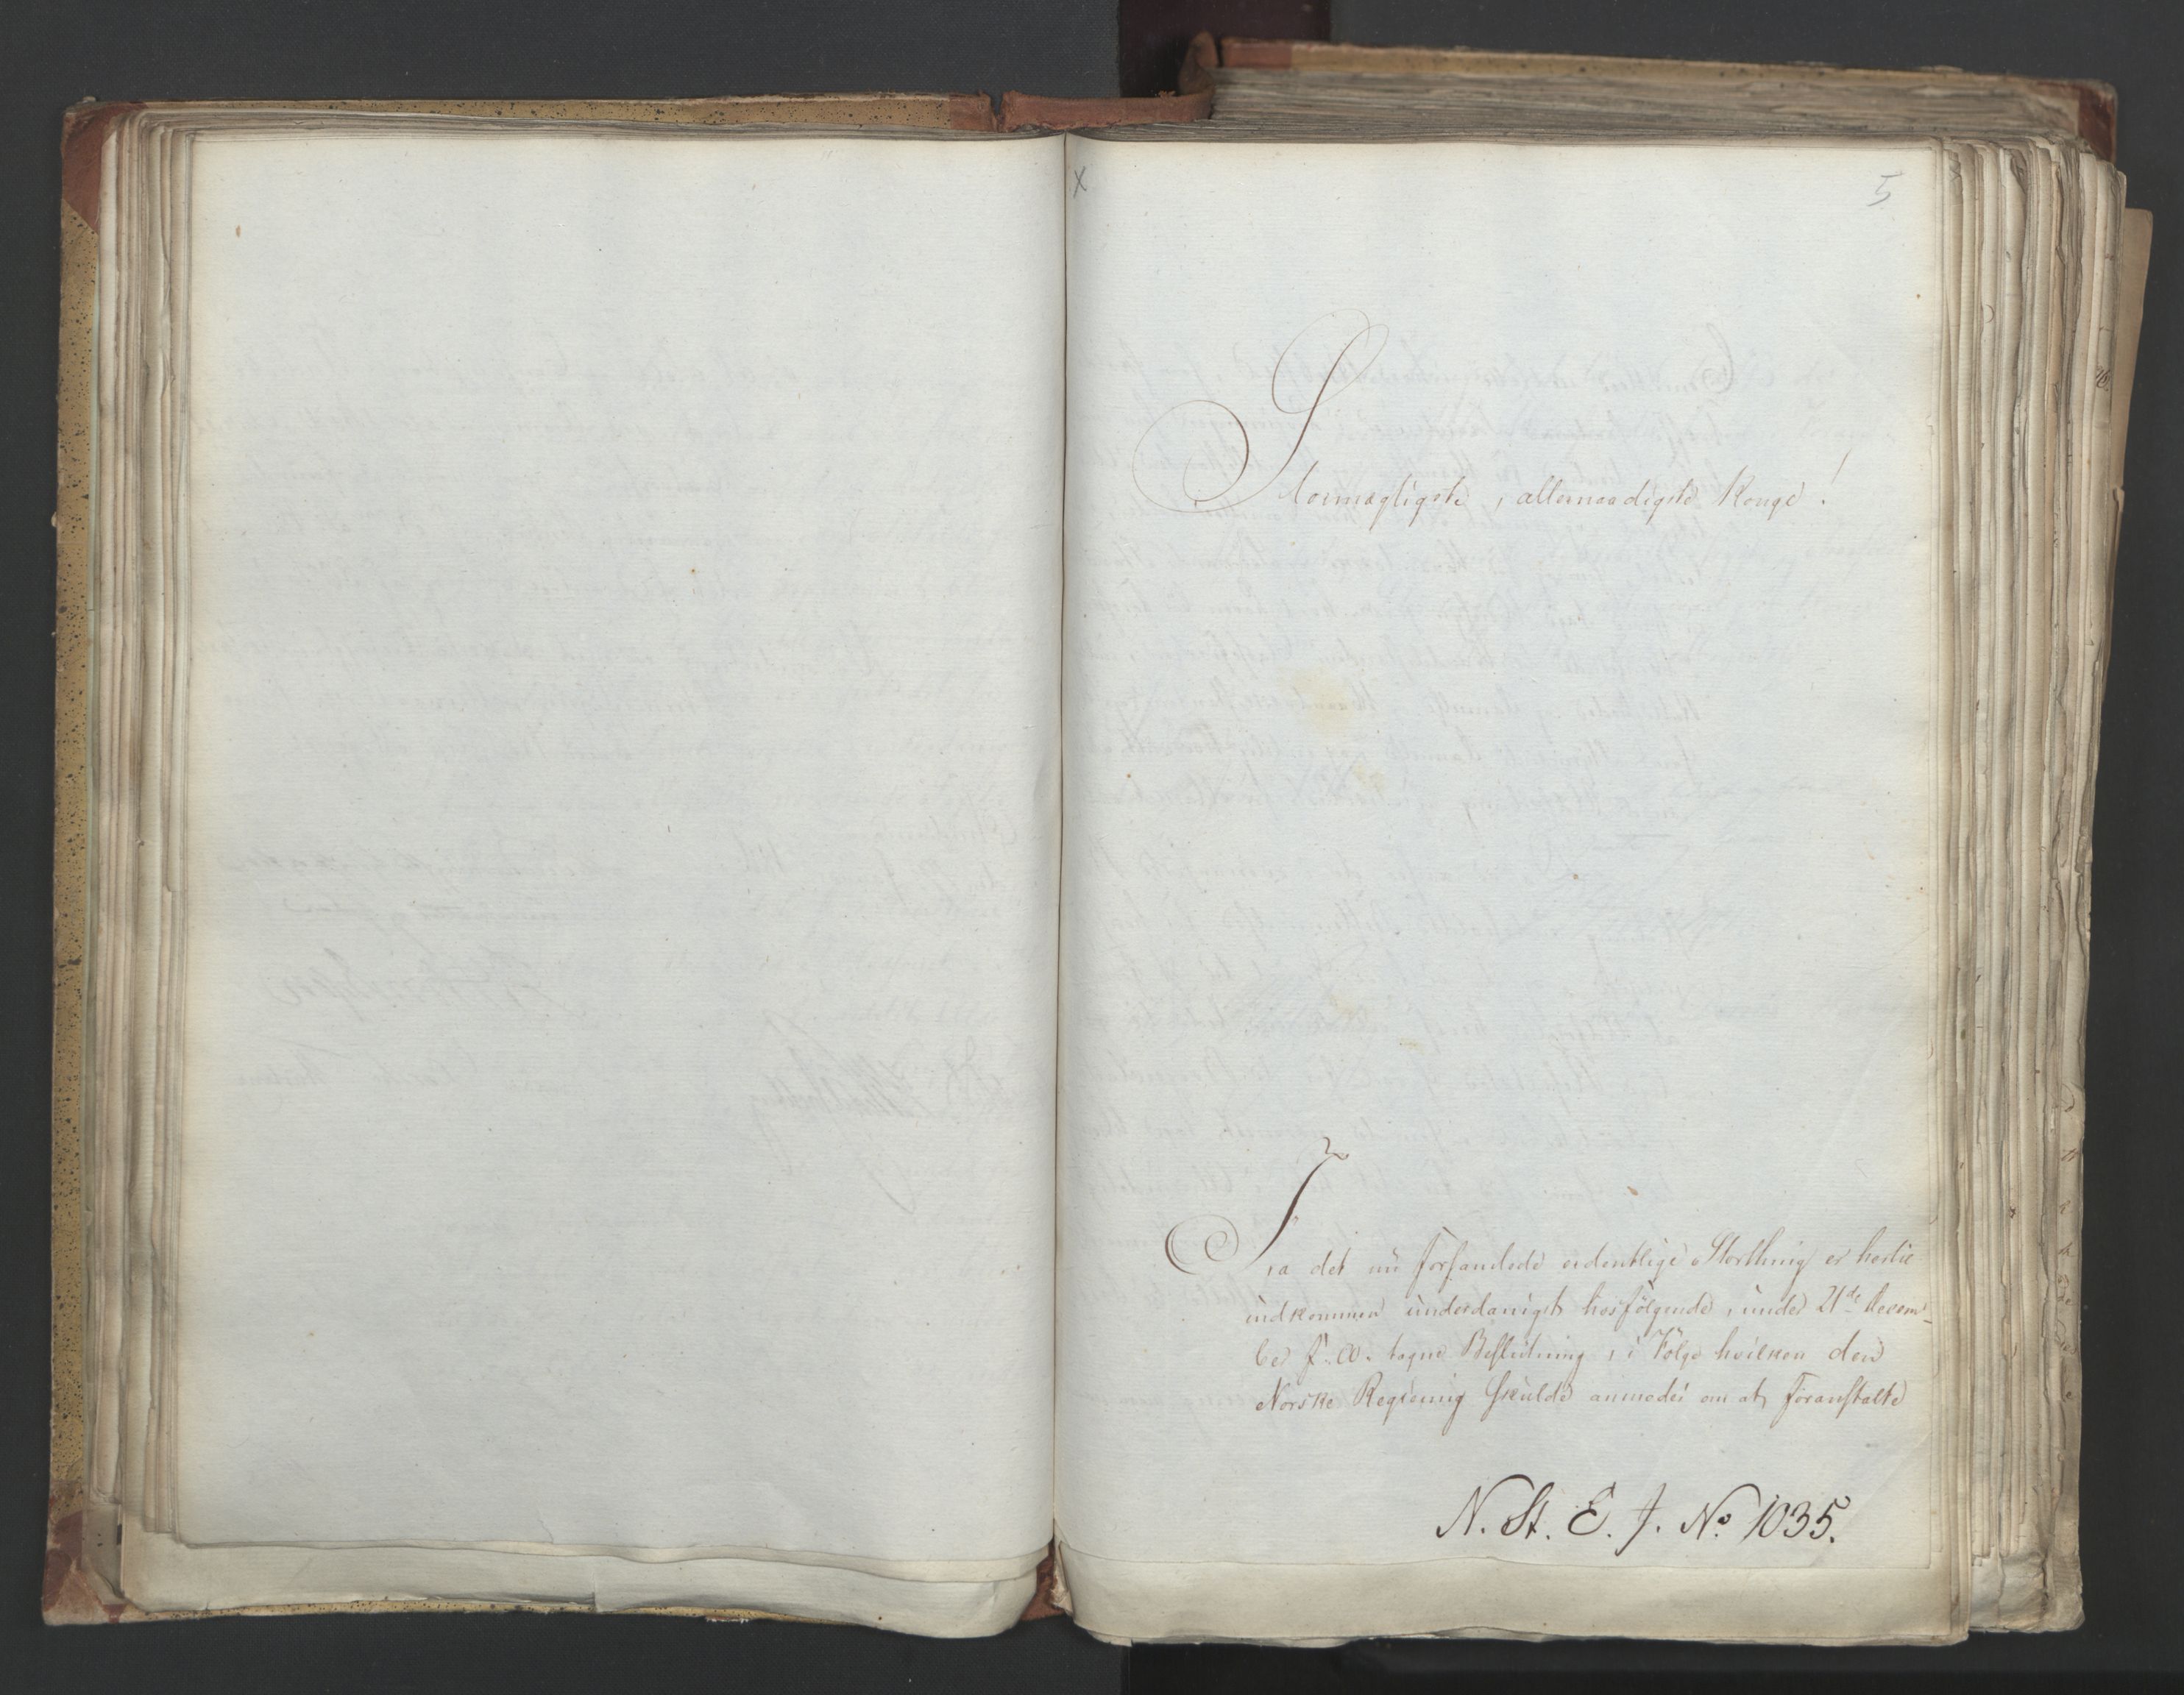 X
5
Stormægtigste, allernaadigste Konge!
Fra det nu forsamlede ordentlige Storthing er hertil
indkommen underdanigst hosfølgende, under 21de Decem-
ber f. A. tagne Beslutning, i Følge hvilken den
Norske Regiering skulde anmodes om at foranstalte
N. St. E. J. No 1035.